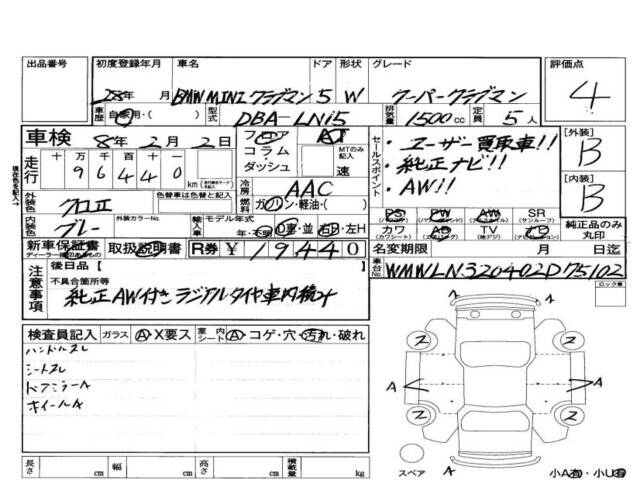 出品番号 初度登録年月 車名 ドア 形状 グレード 評価点
28年 月 BMW MINI クラブマン 5 W クーパークラブマン 4
車歴 自家用・( ) 型式 DBA-LN15 排気量 1500cc 定員 5人
車検 8年 2月 2日 フロア・コラム・ダッシュ AT MTのみ記入 速
走行 十 万 千 百 十 一
9 6 4 4 0 km
冷房 AAC
外装色 クロ正 色替車は色替と記入 燃料 ガソリン・軽油・( )
内装色 グレー 外装カラーNo. 輸入車 モデル年式 年・不明 D車・並 右H・左H
セールスポイント
・ユーザー買取車!!
・純正ナビ!!
・AW!!
[外装] B
[内装] B
PS PW AW SR (サンルーフ)
カワ (カワシート) AB TV (地デジ) ナビ
純正品のみ丸印
新車保証書 取扱説明書 R券 ¥ 19440 名変期限 月 日迄
後日品【 】
車台No. WMWLN320402D75102
ロック車
注意事項 不具合箇所等
純正AW付きラジアルタイヤ車内積み
検査員記入 ガラス A・X要ス 室内シート A・コゲ・穴・汚れ・破れ
ハンドルスレ
シートスレ
ドアミラーA
ホイールA
A
2 2
A A
2 2
スペア A
小A有・小U有
長さ cm 幅 cm 高さ cm 積載量 kg